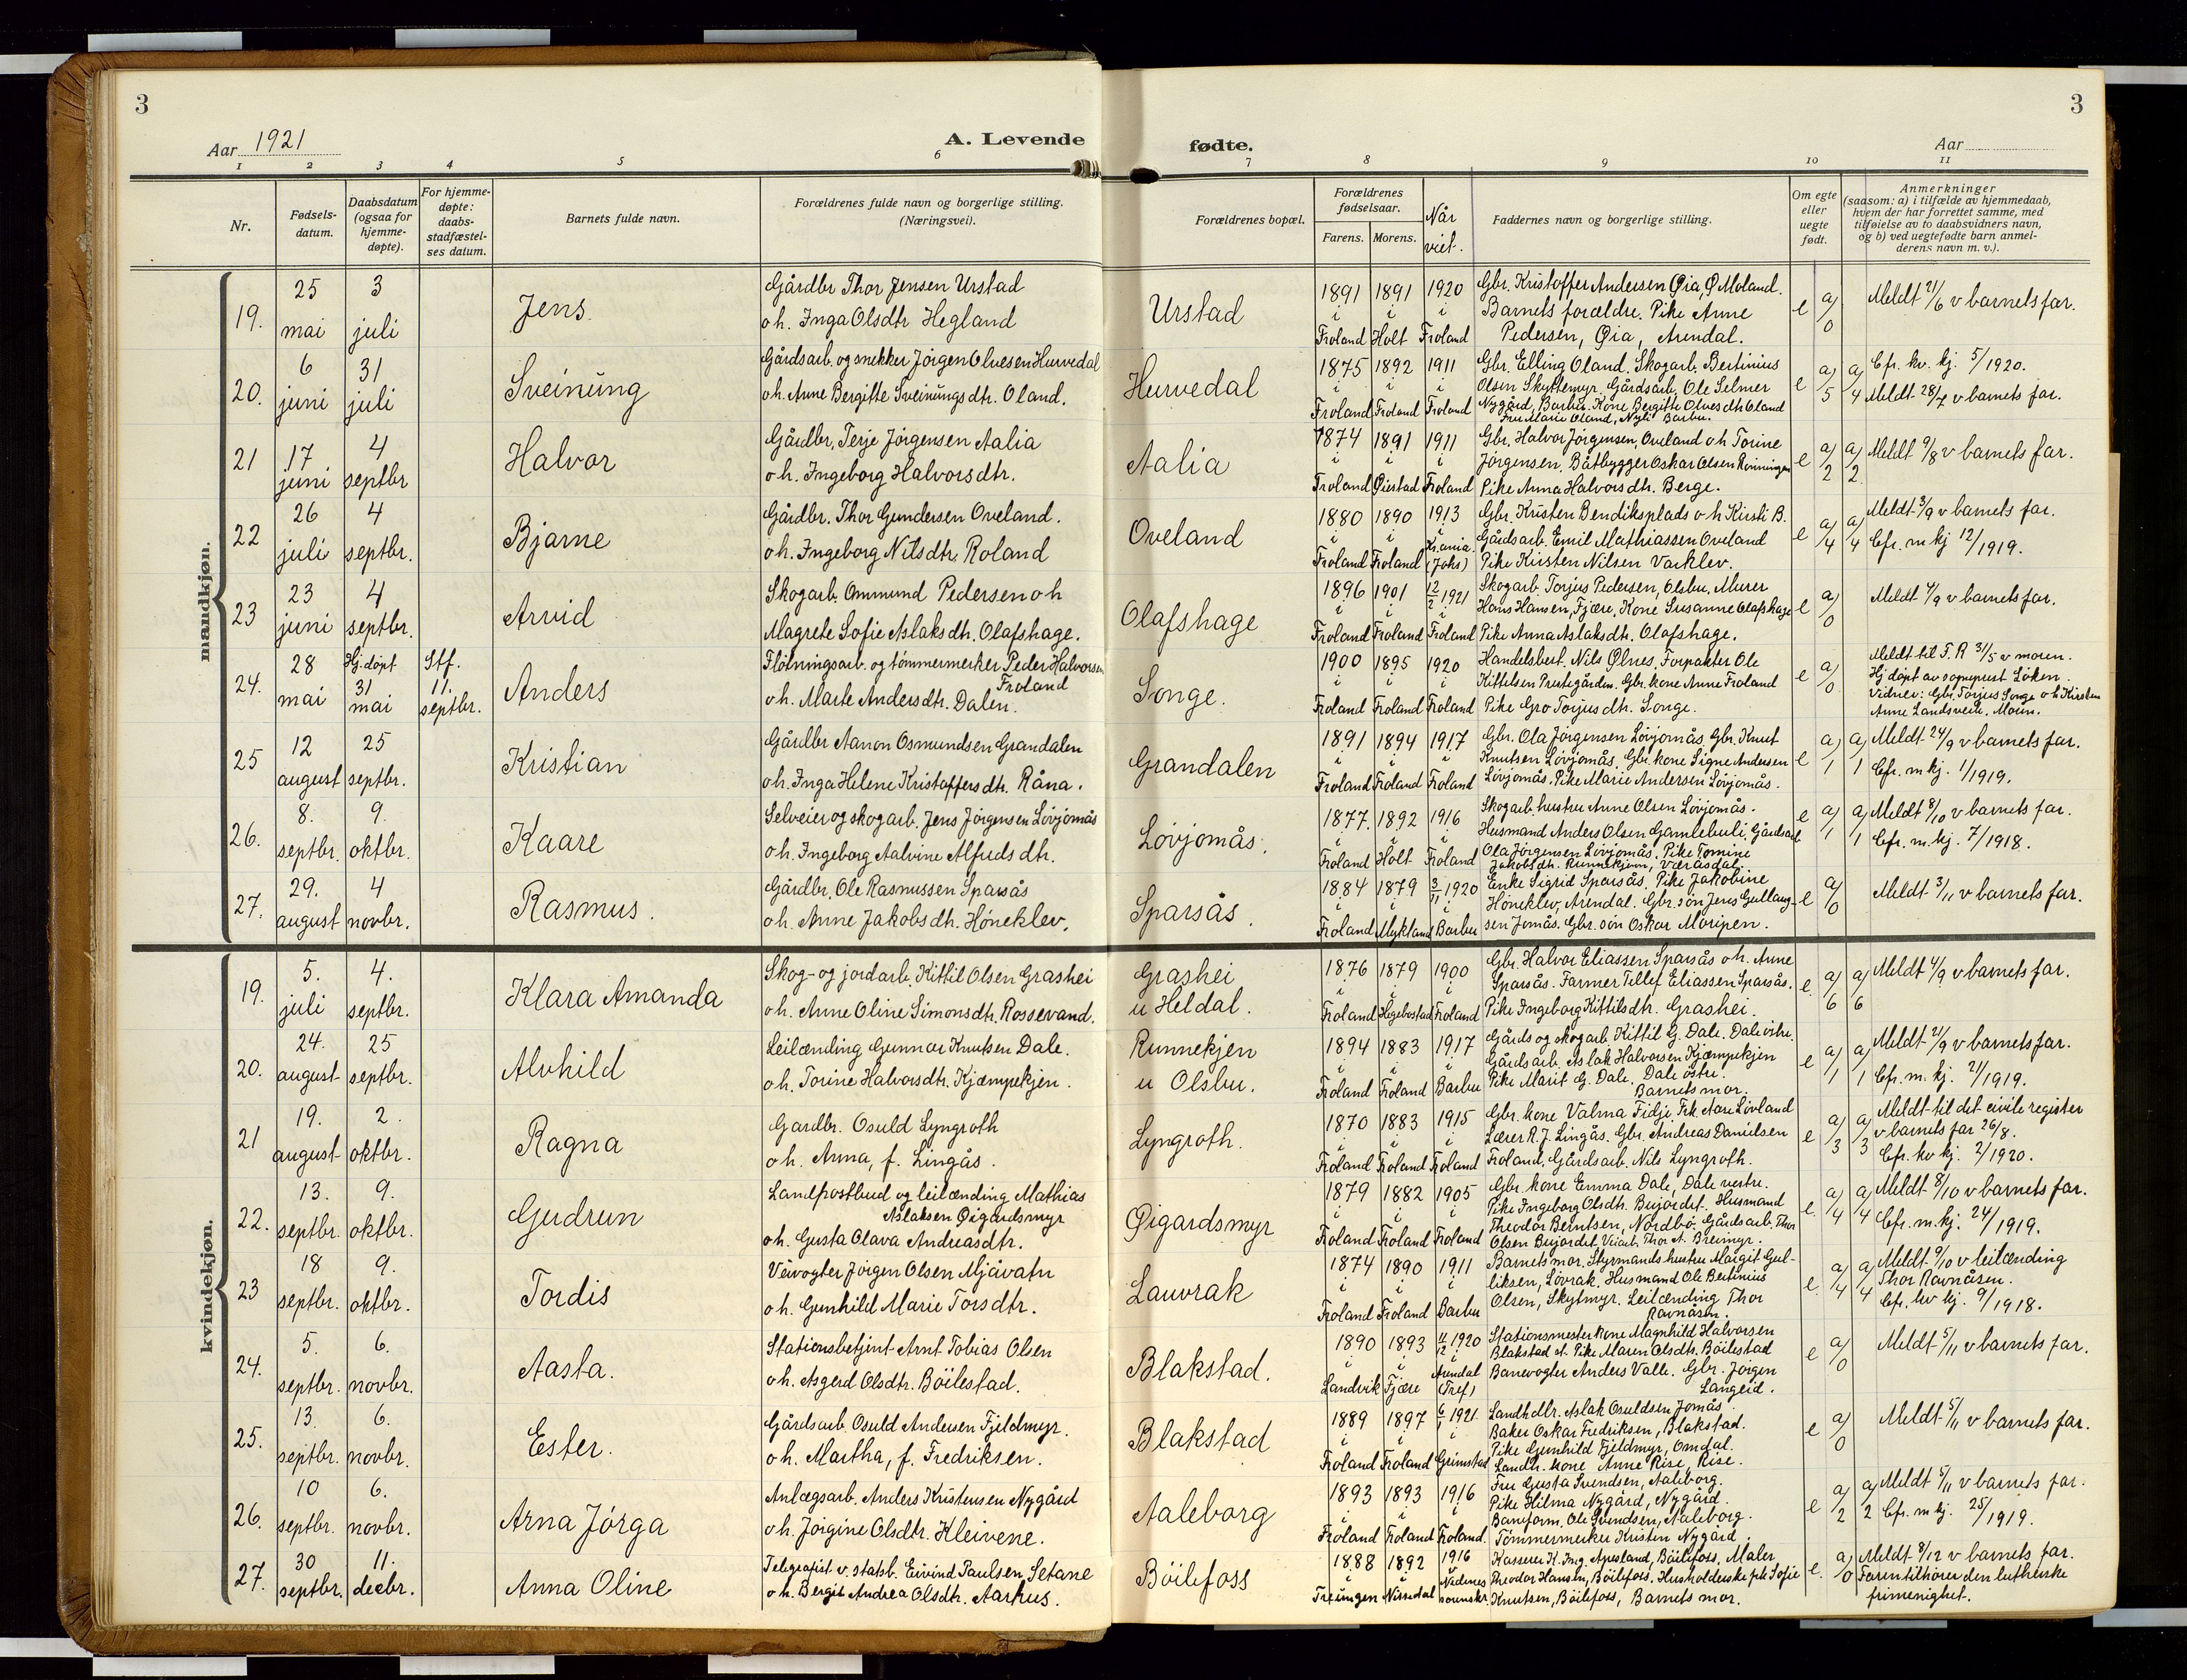 3
3
Aar 1921
A. Levende
fødte.
Aar
1 2 3 4 5 6 7 8 9 10 11
Nr.
Fødsels-
datum.
Daabsdatum
(ogsaa for
hjemme-
døpte).
For hjemme-
døpte:
daabs-
stadfæstel-
ses datum.
Barnets fulde navn.
Forældrenes fulde navn og borgerlige stilling.
(Næringsvei).
Forældrenes bopæl.
Forældrenes
fødselsaar.
Farens. Morens.
Når
viet.
Faddernes navn og borgerlige stilling.
Om egte
eller
uegte
født.
Anmerkninger
(saasom: a) i tilfælde av hjemmedaab,
hvem der har forrettet samme, med
tilføielse av to daabsvidners navn,
og b) ved uegtefødte barn anmel-
derens navn m. v.).
mandkjøn.
19.
25
mai
3
juli
Jens
Gårdbr Thor Jensen Urstad
o h. Inga Olsdtr Hegland
Urstad
1891 1891 1920
i i i
Froland Holt Froland
Gbr. Kristoffer Andersen Øia, Ø Moland.
Barnets forældre. Pike Anne
Pedersen, Øia, Arendal.
e a/0
Meldt 21/6 v barnets far.
20.
6
juni
31
juli
Sveinung
Gårdsarb. og snekker Jörgen Olvesen Hurvedal
o h. Anne Bergitte Sveinungsdtr. Oland.
Hurvedal
1875 1892 1911
i i i
Froland Froland Froland
Gbr. Elling Oland. Skogarb. Bertinius
Olsen Skyttemyr. Gårdsarb. Ole Selmer
Nygård, Barbu. Kone Bergitte Olvesdtr Oland
Fru Marie Oland, Nyli Barbu.
e a/5 a/4
Cfr. kv. kj. 5/1920.
Meldt 28/7 v barnets far.
21
17
juni
4
septbr
Halvor
Gårdbr. Terje Jörgensen Aalia
o h. Ingeborg Halvorsdtr.
Aalia
1874 1891 1911
i i i
Froland Øiestad Froland
Gbr. Halvor Jörgensen, Oveland o h Torine
Jörgensen. Båtbygger Oskar Olsen Rönningen
Pike Anna Halvorsdtr. Berge.
e a/2 a/2
Meldt 9/8 v barnets far.
22
26
juli
4
septbr.
Bjarne
Gårdbr. Thor Gundersen Oveland.
o h. Ingeborg Nilsdtr. Roland
Oveland
1880 1890 1913
i i Kr.ania
Froland Froland (Johs)
Gbr. Kristen Bendiksplads o h Kirsti B.
Gårdsarb. Emil Mathiassen Oveland
Pike Kirsten Nilsen Varklev.
e a/4 a/4
Meldt 3/9 v barnets far.
Cfr. m kj 12/1919.
23
23
juni
4
septbr.
Arvid
Skogarb. Ommund Pedersen o h
Magrete Sofie Aslaksdtr. Olafshage.
Olafshage
1896 1901 12/2 1921
i i i
Froland Froland Froland
Skogarb. Torjus Pedersen, Olsbu, Murer
Hans Hansen, Fjære, Kone Susanne Olafshage
Pike Anna Aslaksdtr. Olafshage.
e a/0
Meldt 4/9 v barnets far.
24.
28
mai
Hj. döpt
31
mai
Stf.
11.
septbr.
Anders
Flötningsarb. og tömmermerker Peder Halvorsen
Froland
o h. Marte Andersdtr. Dalen.
Songe.
1900 1895 1920
i i i
Froland Froland Froland
Handelsbest. Nils Ølnes, Forpakter Ole
Kittelsen Prestegården. Gbr. kone Anne Froland
Pike Gro Torjusdtr. Songe.
e a/0
Meldt til F. R 31/5 v moren.
Hj döpt av sogneprest Löken.
Vidner: Gbr. Torjus Songe o h Kirsten
Anne Landsverk. Moren.
25
12
august
25
septbr.
Kristian
Gårdbr Aanon Osmundsen Grandalen
o h. Inga Helene Kristoffersdtr. Råna.
Grandalen
1891 1894 1917
i i i
Froland Froland Froland
Gbr. Ola Jörgensen Lövjomås, Gbr. Knut
Knutsen Lövjomås, Gbr. kone Signe Andersen
Lövjomås. Pike Marie Andersen Lövjomås.
e a/1 a/1
Meldt 24/9 v barnets far.
Cfr. m kj. 1/1919.
26.
8.
septbr.
9.
oktbr.
Kaare
Selveier og skogarb. Jens Jörgensen Lövjomås
o h. Ingeborg Aalvine Alfredsdtr.
Lövjomås.
1877. 1892 1916
i i i
Froland Holt Froland
Skogarb. hustru Anne Olsen Lövjomås.
Husmand Anders Olsen Gamlebuli, Gårdsarb
Ola Jörgensen Lövjomås. Pike Tomine
Jakobsdtr. Runnekjenn, Veråsdal.
e a/1 a/1
Meldt 8/10 v barnets far.
Cfr. m. kj. 7/1918.
27.
29.
august
4
novbr.
Rasmus.
Gårdbr. Ole Rasmussen Sparsås
o h. Anne Jakobsdtr. Höneklev.
Sparsås.
1884 1879 3/11 1920
i i i
Froland Mykland Barbu
Enke Sigrid Sparsås. Pike Jakobine
Höneklev, Arendal. Gbr. sön Jens Gullaug-
sen Jomås. Gbr. sön Oskar Moripen.
e a/0
Meldt 3/11 v barnets far.
kvindekjøn.
19.
5.
juli
4.
septbr.
Klara Amanda
Skog- og jordarb. Kittil Olsen Grashei
o h. Anne Oline Simonsdtr. Rossevand.
Grashei
u Heldal.
1876 1879 1900
i i i
Froland Hegebostad Froland
Gbr. Halvor Eliassen Sparsås o h. Anne
Sparsås. Farmer Tellef Eliassen Sparsås.
Pike Ingeborg Kittilsdtr. Grashei.
e. a/6 a/6
Meldt 4/9 v barnets far.
20.
24.
august
25
septbr.
Alvhild
Leilænding Gunnar Knutsen Dale.
o h. Torine Halvorsdtr. Kjæmpekjen.
Runnekjen
u Olsbu.
1894 1883 1917
i i i
Froland Froland Barbu
Gårds og skogarb. Kittil G. Dale. Dale vstre.
Gårdsarb. Aslak Halvorsen Kjæmpekjen
Pike Marit G. Dale. Dale östre.
Barnets mor.
e a/1 a/1
Meldt 21/9 v barnets far.
Cfr. m. kj. 21/1919.
21
19.
august
2.
oktbr.
Ragna
Gardbr. Osuld Lyngroth
o h. Anna, f. Lingås.
Lyngroth.
1870 1883 1915
i i i
Froland Froland Froland
Gbr. kone Valma Fidje. Frk. Aase Lövland
Lærer R. J. Lingås. Gbr. Andreas Danielsen
Froland, Gårdsarb. Nils Lyngroth.
e a/3 a/3
Meldt til det civile register
v barnets far 26/8.
Cfr. kv kj. 2/1920.
22.
13.
septbr.
9.
oktbr.
Gudrun
Landpostbud og leilænding Mathias
Aslaksen Øigardsmyr
o h. Gusta Olava Andreasdtr.
Øigardsmyr
1879 1882 1905
i i i
Froland Froland Froland
Gbr. kone Emma Dale, Dale vestre.
Pike Ingeborg Olsdtr. Bujordet. Husmand
Theodor Berntsen, Nordbö. Gårdsarb. Thor
Olsen Bujordet. Veiarb. Thor A. Breimyr.
e. a/4 a/4
Meldt 8/10 v barnets far.
Cfr. m. kj. 24/1919.
23
18
septbr.
9.
oktbr.
Tordis
Veivogter Jörgen Olsen Mjåvatn
o h. Gunhild Marie Torsdtr.
Lauvrak
1874 1890 1911
i i i
Froland Froland Barbu
Barnets mor. Styrmands hustru Margit Gul-
liksen, Lövrak. Husmand Ole Bertinius
Olsen, Skytmyr. Leilænding Thor
Ravnåsen.
e. a/4 a/4
Meldt 9/10 v leilænding
Thor Ravnåsen.
Cfr. kv kj. 9/1918.
24.
5.
septbr.
6.
novbr.
Aasta.
Stationsbetjent Arnt Tobias Olsen
o h. Asgerd Olsdtr. Böilestad.
Blakstad.
1890 1893 11/12 1920
i i Arendal
Landvik Fjære (Tref)
Stationsmester kone Magnhild Halvorsen
Blakstad st. Pike Maren Olsdtr. Böilestad
Banevogter Anders Valle. Gbr. Jörgen
Langeid.
e a/0
Meldt 5/11 v barnets far.
25.
13.
septbr.
6.
novbr.
Ester.
Gårdsarb. Osuld Andersen Fjeldmyr.
o h. Martha, f. Fredriksen.
Blakstad
1889 1897 6/1 1921.
i i i
Froland Froland Grimstad
Landhdlr. Aslak Osuldsen Jomås.
Baker Oskar Fredriksen, Blakstad.
Pike Gunhild Fjeldmyr, Omdal.
Landh. kone Anne Rise, Rise.
e a/0
Meldt 5/11 v barnets far.
26.
10
septbr.
6.
novbr.
Arna Jörga
Anlægsarb. Anders Kristensen Nygård
o h. Jörgine Olsdtr. Kleivene.
Aaleborg
1893 1893 1916
i i i
Froland Froland Froland.
Fru Gusta Svendsen, Aaleborg.
Pike Hilma Nygård, Nygård.
Baneform. Ole Svendsen, Aaleborg.
Tömmermerker Kristen Nygård.
e a/2 a/2
Meldt 5/11 v barnets far.
Cfr. m kj. 25/1919.
27.
30
septbr.
11.
decbr.
Anna Oline
Telegrafist v. statsb. Eivind Paulsen Setane
o h. Bergit Andrea Olsdtr. Aarhus.
Böilefoss
1888 1892 1916
i i Nedenes
Treungen Nissedal sorenskr.
Kasserer K. Ing. Apesland, Böilefoss, Maler
Theodor Hansen, Böilefoss. Husholderske frk Sofie
Knutsen, Böilefoss, Barnets mor.
e. a/0
Meldt 8/12 v barnets far.
Faren tilhörer den lutherske
frimenighet.